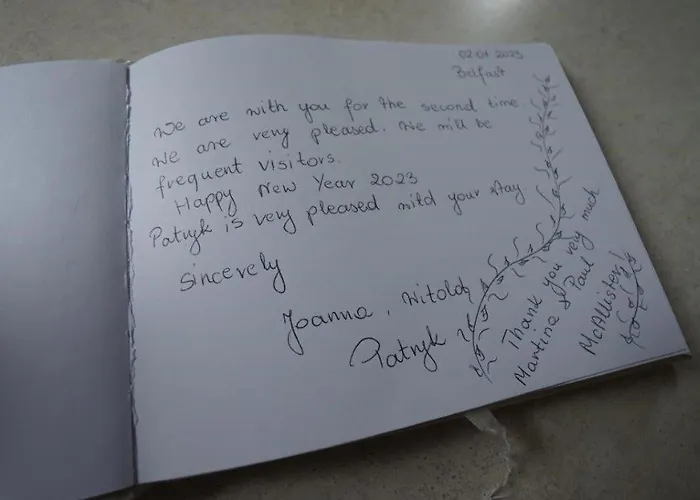 02.01 2023
Belfast
We are with you for the second time
We are very pleased. We will be
frequent visitors.
Happy New Year 2023
Patryk is very pleased mitd your stay
sincerely
Joanna, Witold,
Patryk
Thank you very much
Martina & Paul
McAllister!